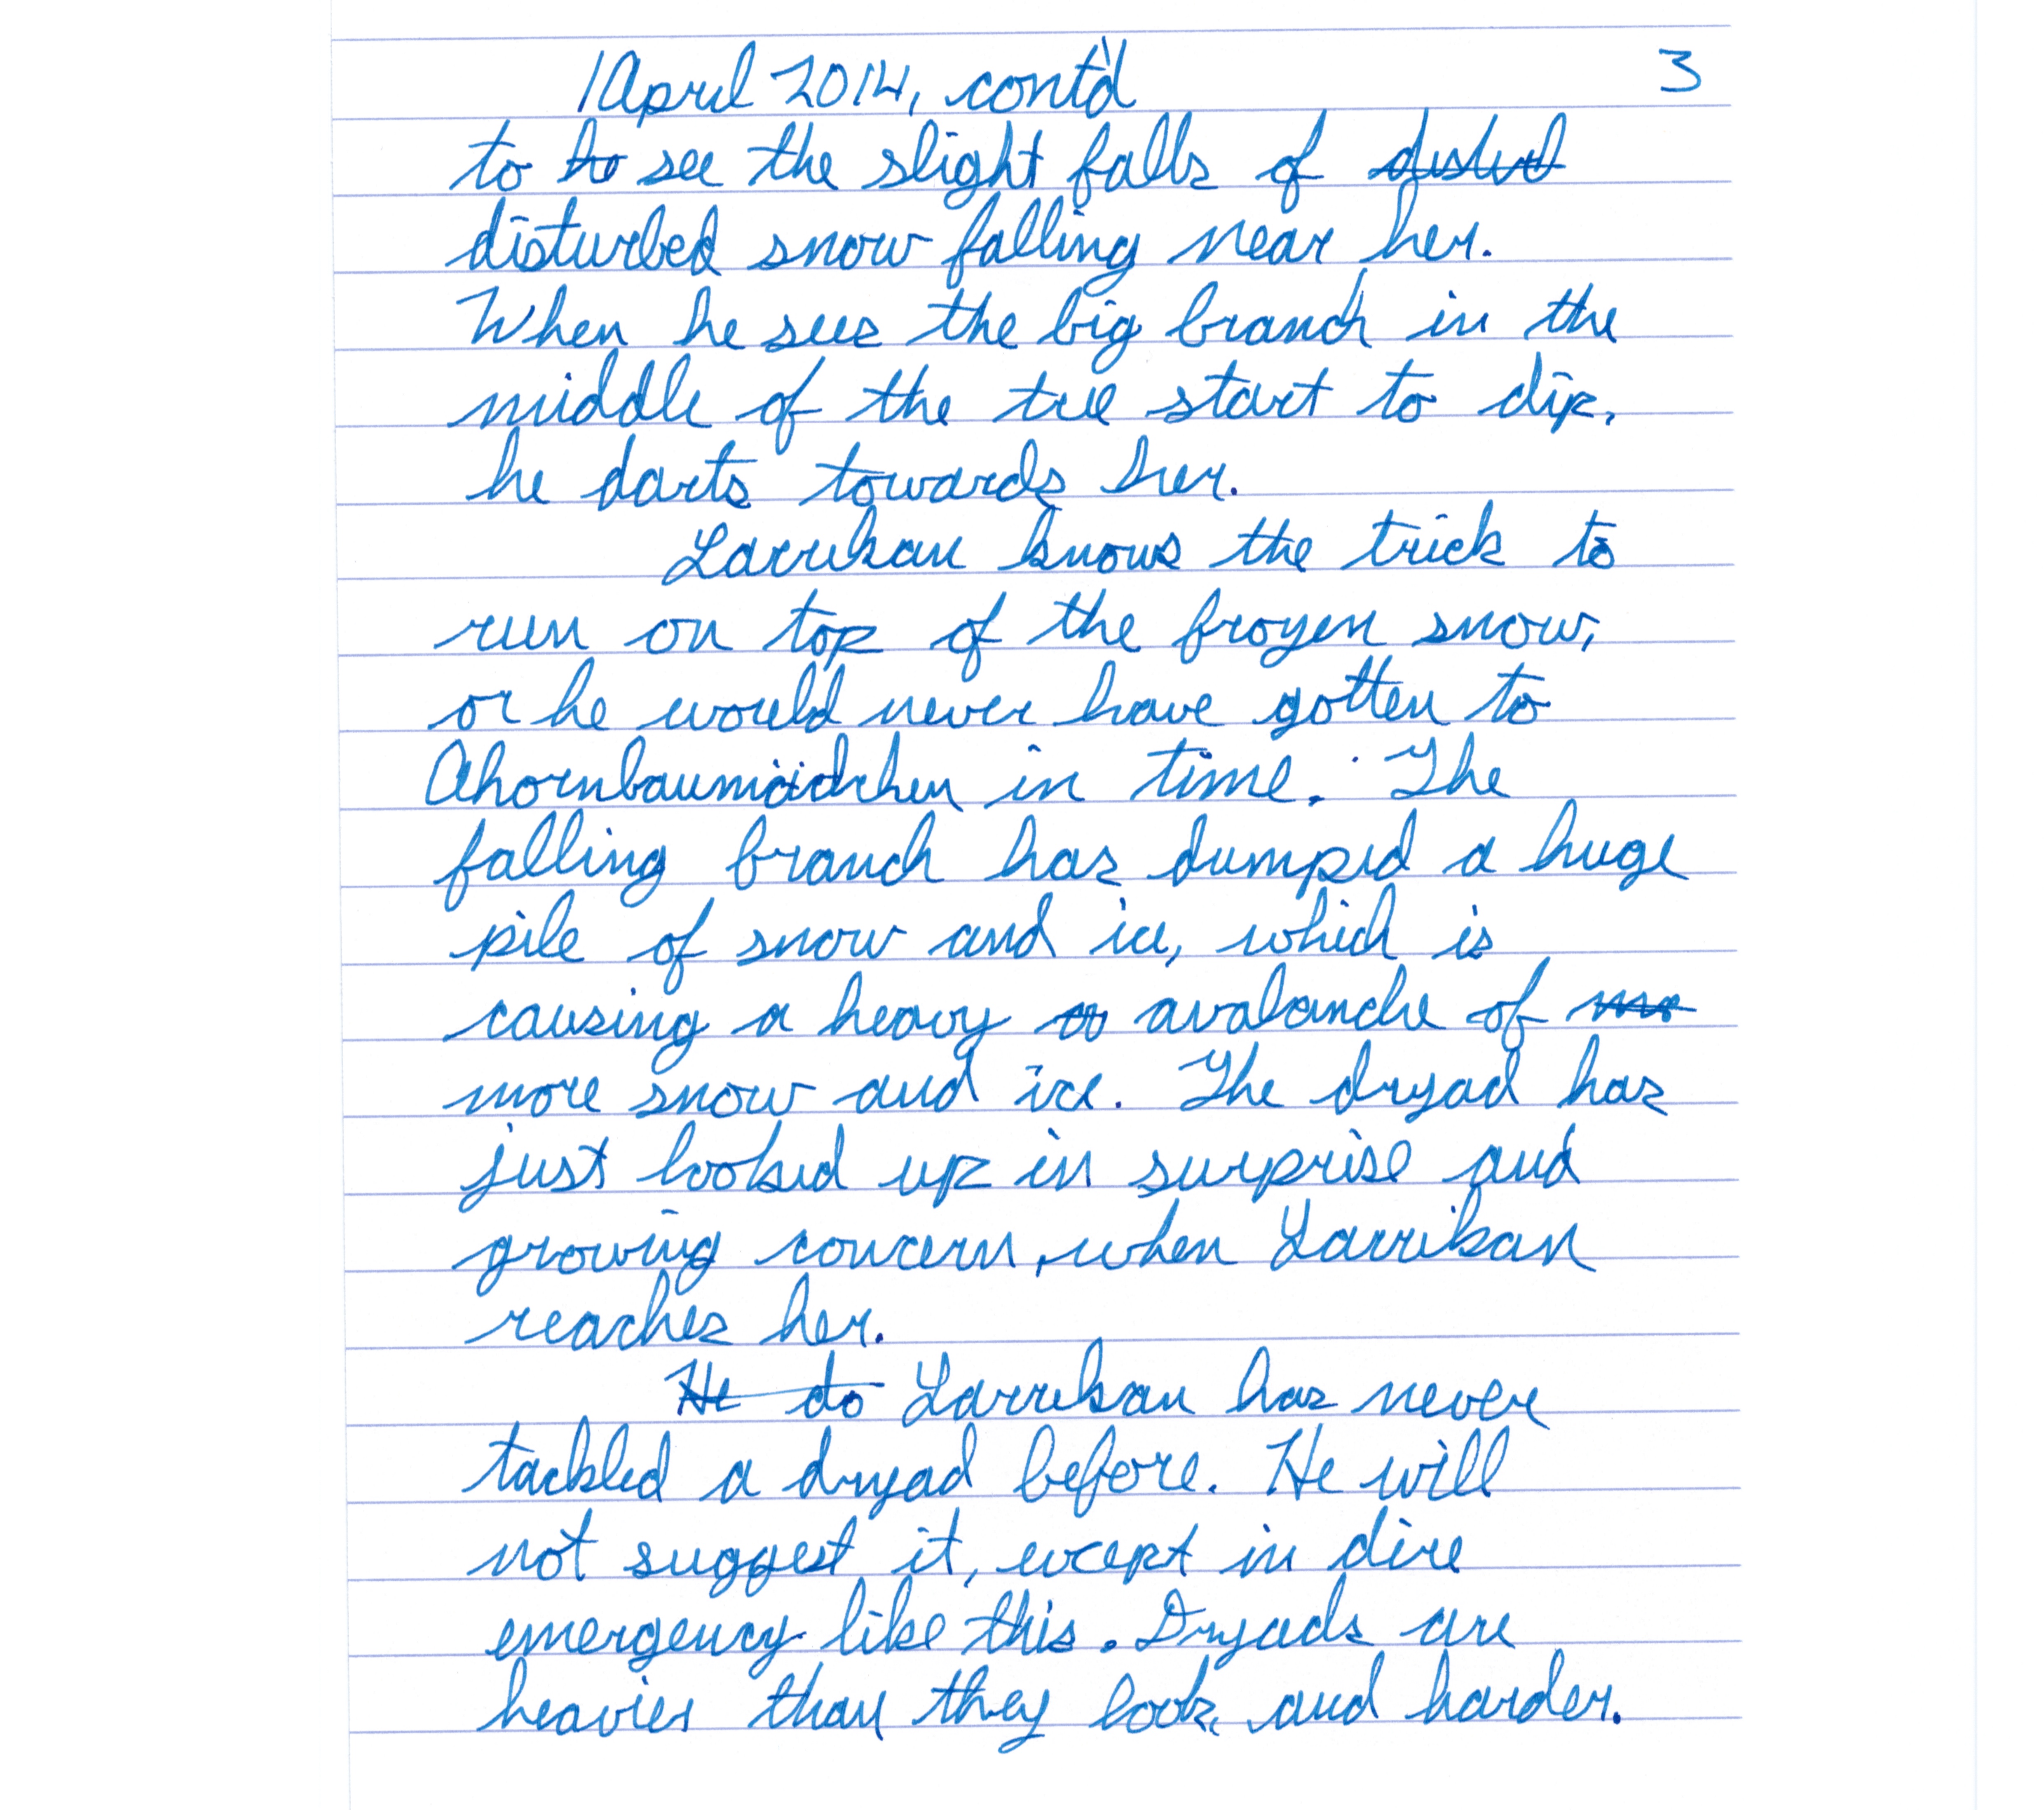 1 April 2014, cont'd 3
to to see the slight falls of
disturbed snow falling near her.
When he sees the big branch in the
middle of the tree start to dip,
he darts towards her.
Larrikan knows the trick to
run on top of the frozen snow,
or he would never have gotten to
Ahornbaumädchen in time. The
falling branch has dumped a huge
pile of snow and ice, which is
causing a heavy avalanche of
more snow and ice. The dryad has
just looked up in surprise and
growing concern, when Larrikan
reaches her.
He do Larrikan has never
tackled a dryad before. He will
not suggest it, except in dire
emergency like this. Dryads are
heavier than they look, and harder.